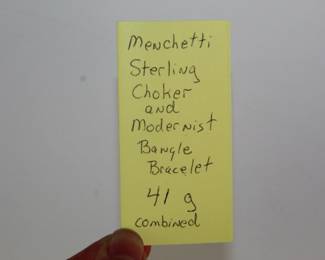 Menchetti
Sterling
Choker
and
Modernist
Bangle
Bracelet
41 g
combined